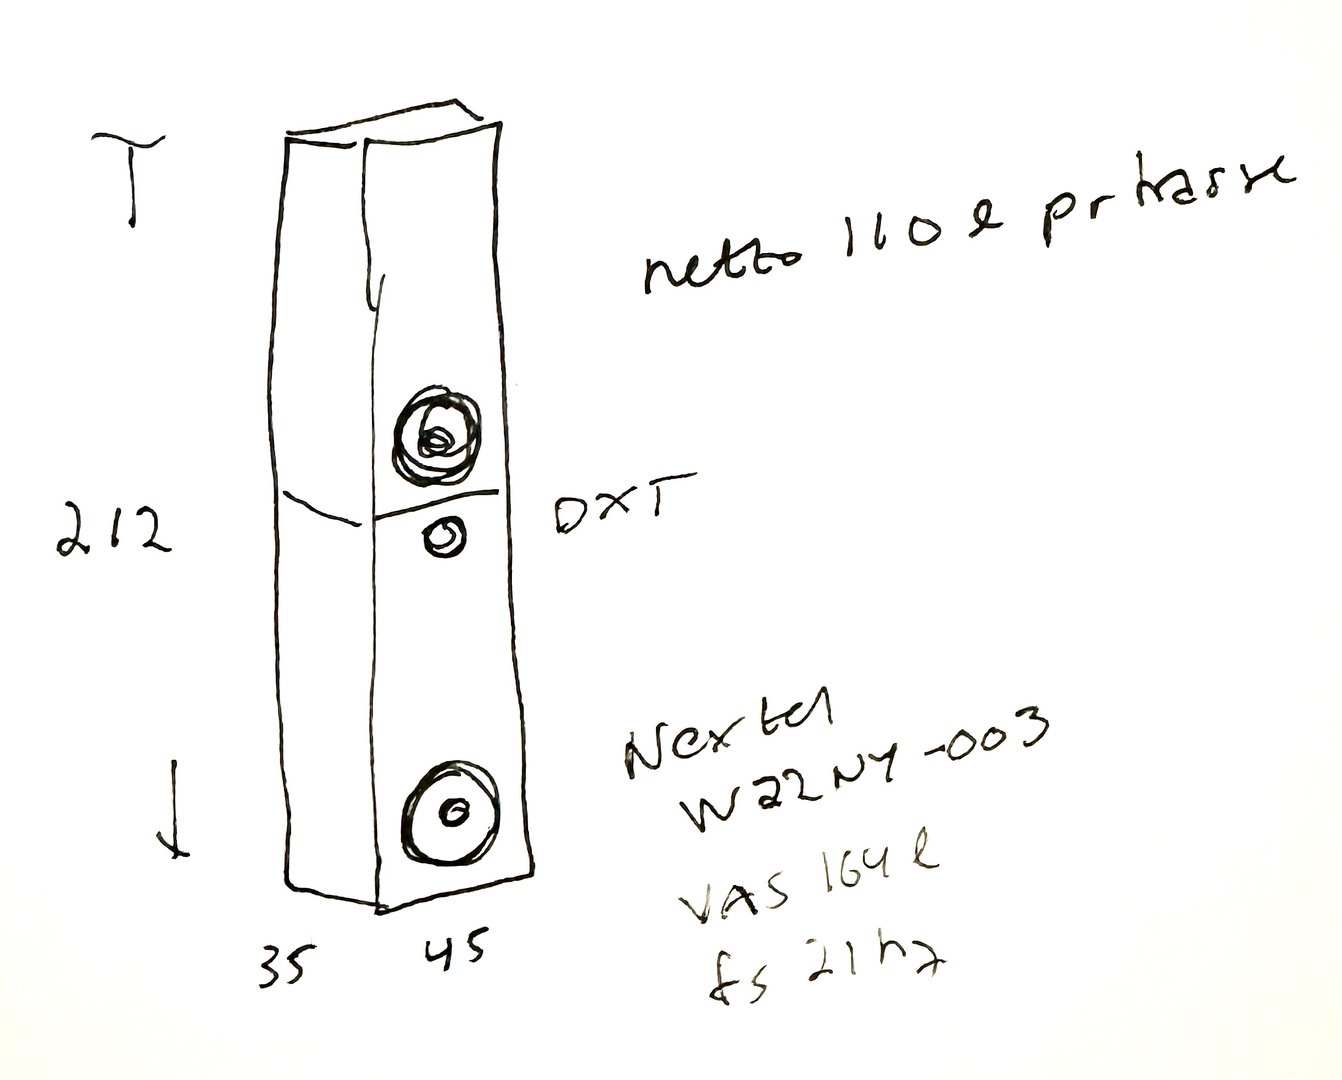 netto 110 l pr kasse
212
DXT
Nextel
W22NY-003
VAS 164 l
fs 21 hz
35
45